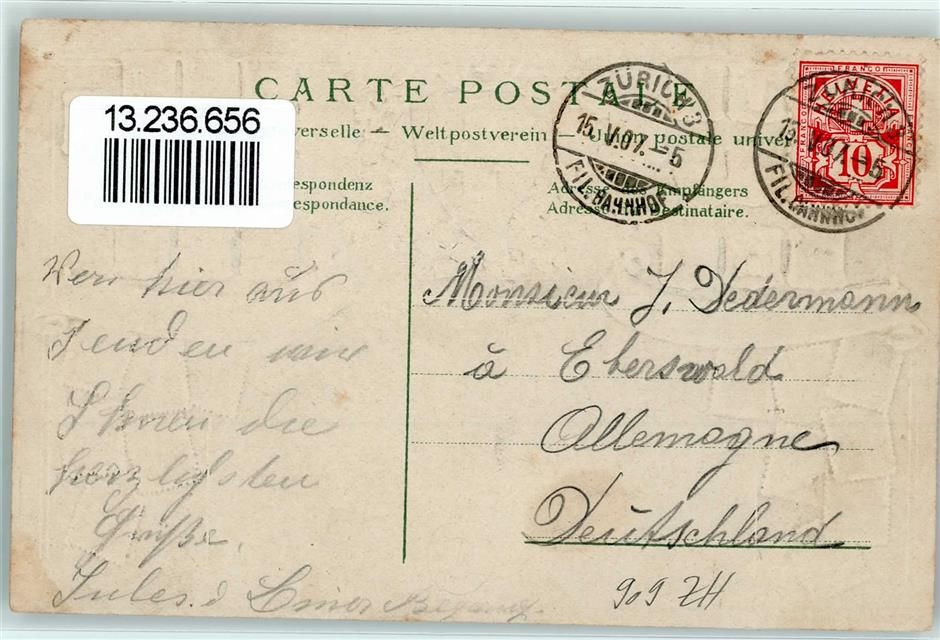 CARTE POSTALE
13.236.656
verselle — Weltpostverein — Union postale univer
espondenz
espondance.
Adresse des Empfängers
Adresse destinataire.
ZÜRICH 3
15.V.07.–5
FIL. BAHNHOF
FRANCO
10
15.V.07.–5
FIL. BAHNHOF
Von hier aus
senden wir
Ihnen die
herzlichsten
Grüße.
Jules &
Monsieur J. Dedermann
à Eberswald
Allemagne
Deutschland
909 ZH